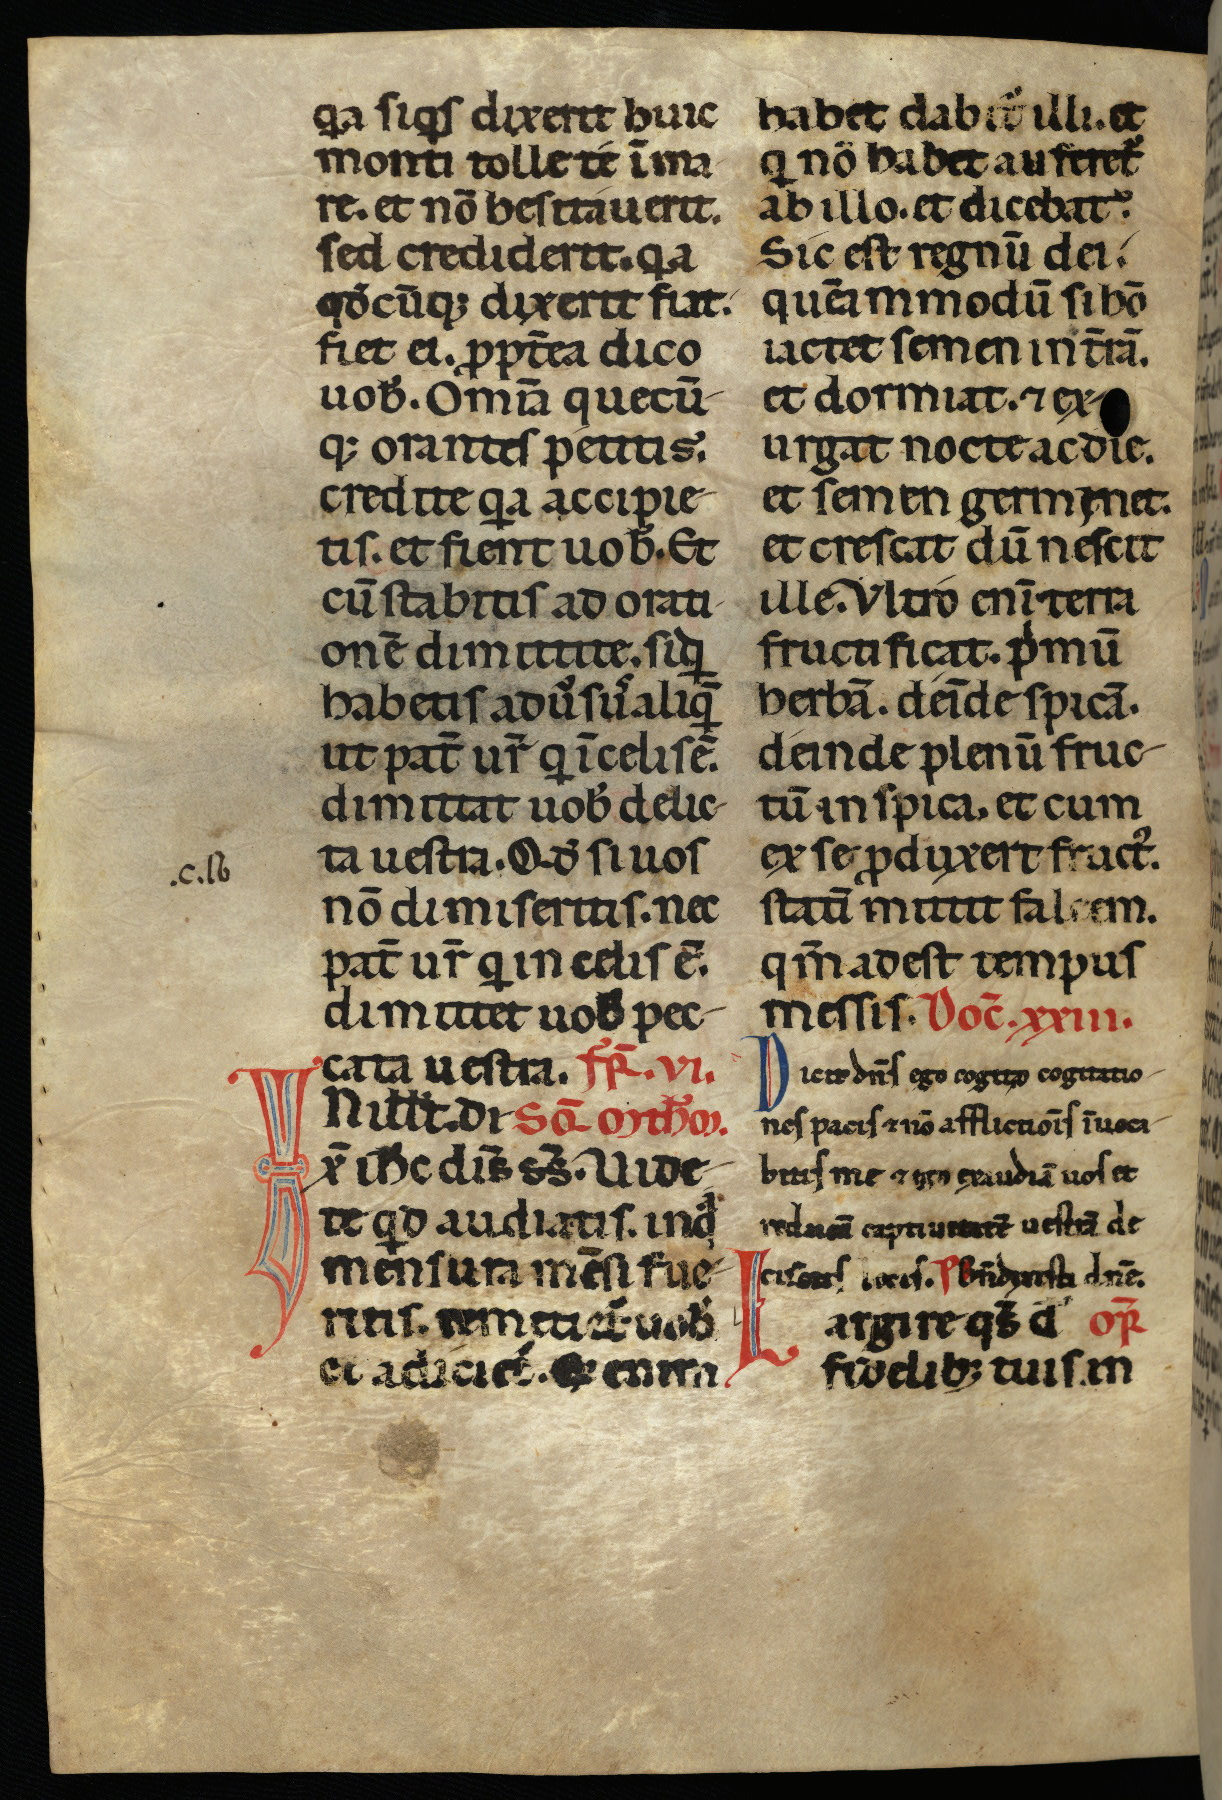 qa siqͥs dixerit huic
monti tolle te ī ma
re. et nō hesitauerit.
sed crediderit. qa
qđcūq; dixerit fiat.
fiet ei. ppt̄ea dico
uob̄. Om̄ia quecū
q; orantes petitis.
credite qa accipie
tis. et fient uob̄. Et
cū stabitis ad orati
onē dimittite. siq̇d
habetis adūsus aliq̄
ut pat̄ ur̄ q ī celis ē.
dimittat uob̄ delic
ta uestra. Qđ si uos
.c.lb
nō dimiseritis. nec
pat̄ ur̄ q in celis ē.
dimittet uob̄ pec
cata uestra. fr̄. vi.
IN illo t. dr Sō
x̄ ihc dis̄ ss̄. Uide
te qđ audiatis. in q̄
mensura mēsi fue
ritis. remetiet̄ uob̄
et adiciet̄. enim
habet dabit̄ illi. et
q nō habet auferet̄
ab illo. et dicebat.
Sic est regnū dei.
quēammodū si hō
iactet semen in t̄rā.
et dormiat. ⁊ ex
urgat nocte ac die.
et semen germinet.
et crescat dū nescit
ille. Vltro enī terra
fructificat. pͥmū
herbā. deīde spicā.
deinde plenū fruc
tū in spica. et cum
ex se ꝓduxerit fruct̄.
statī mittit falcem.
qm̄ adest tempus
messis. Doc̄. xxiii.
Dicit dn̄s ego cogito cogitatio
nes pacis ⁊ nō afflictiōis īuoca
bitis me ⁊ ego exaudiā uos et
reducā captiuitatē uestrā de
cūctis locis. P Bn̄dixisti dn̄e.
Largire qs̄ d̄ or̄
fidelib; tuis. in